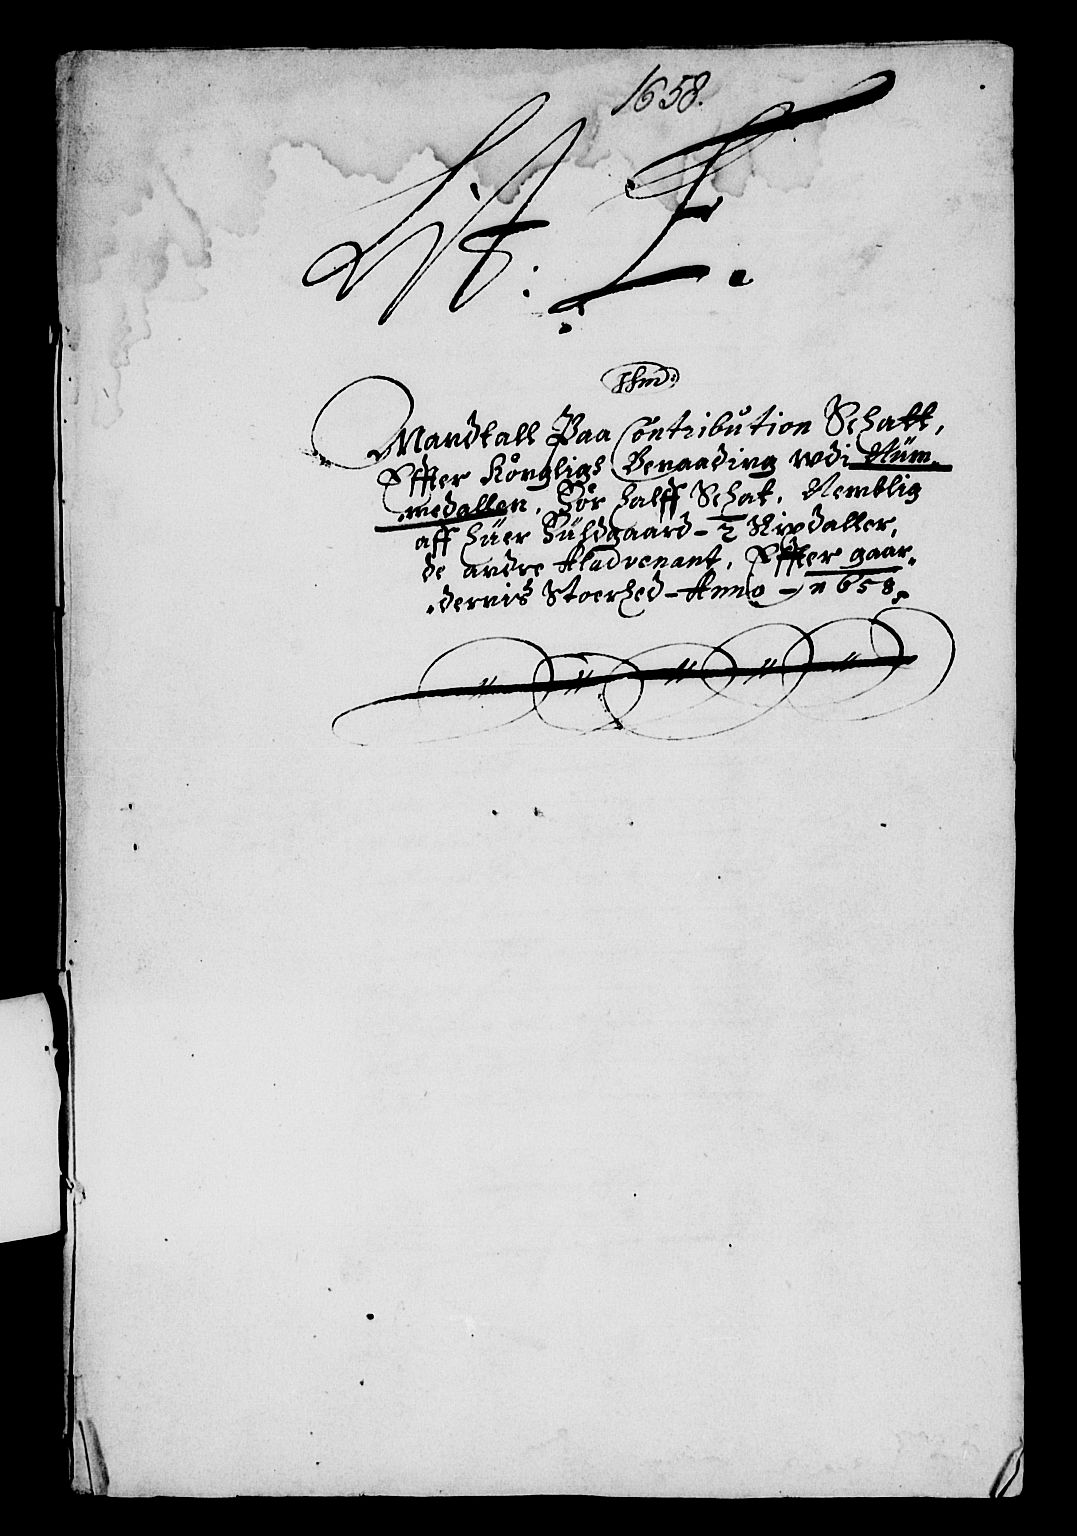 1658.
Lit: E.
Mandtall Paa Contribution Schatt,
Effter Kongligh Benaading wdi Rüm,
medallen, For halff Schat, Nemblig
aff huer Füldgaard - 2 Rixdaller,
de andre Aladvenant, Effter gaar,
,dernis Stoerhed - Anno - 1658,